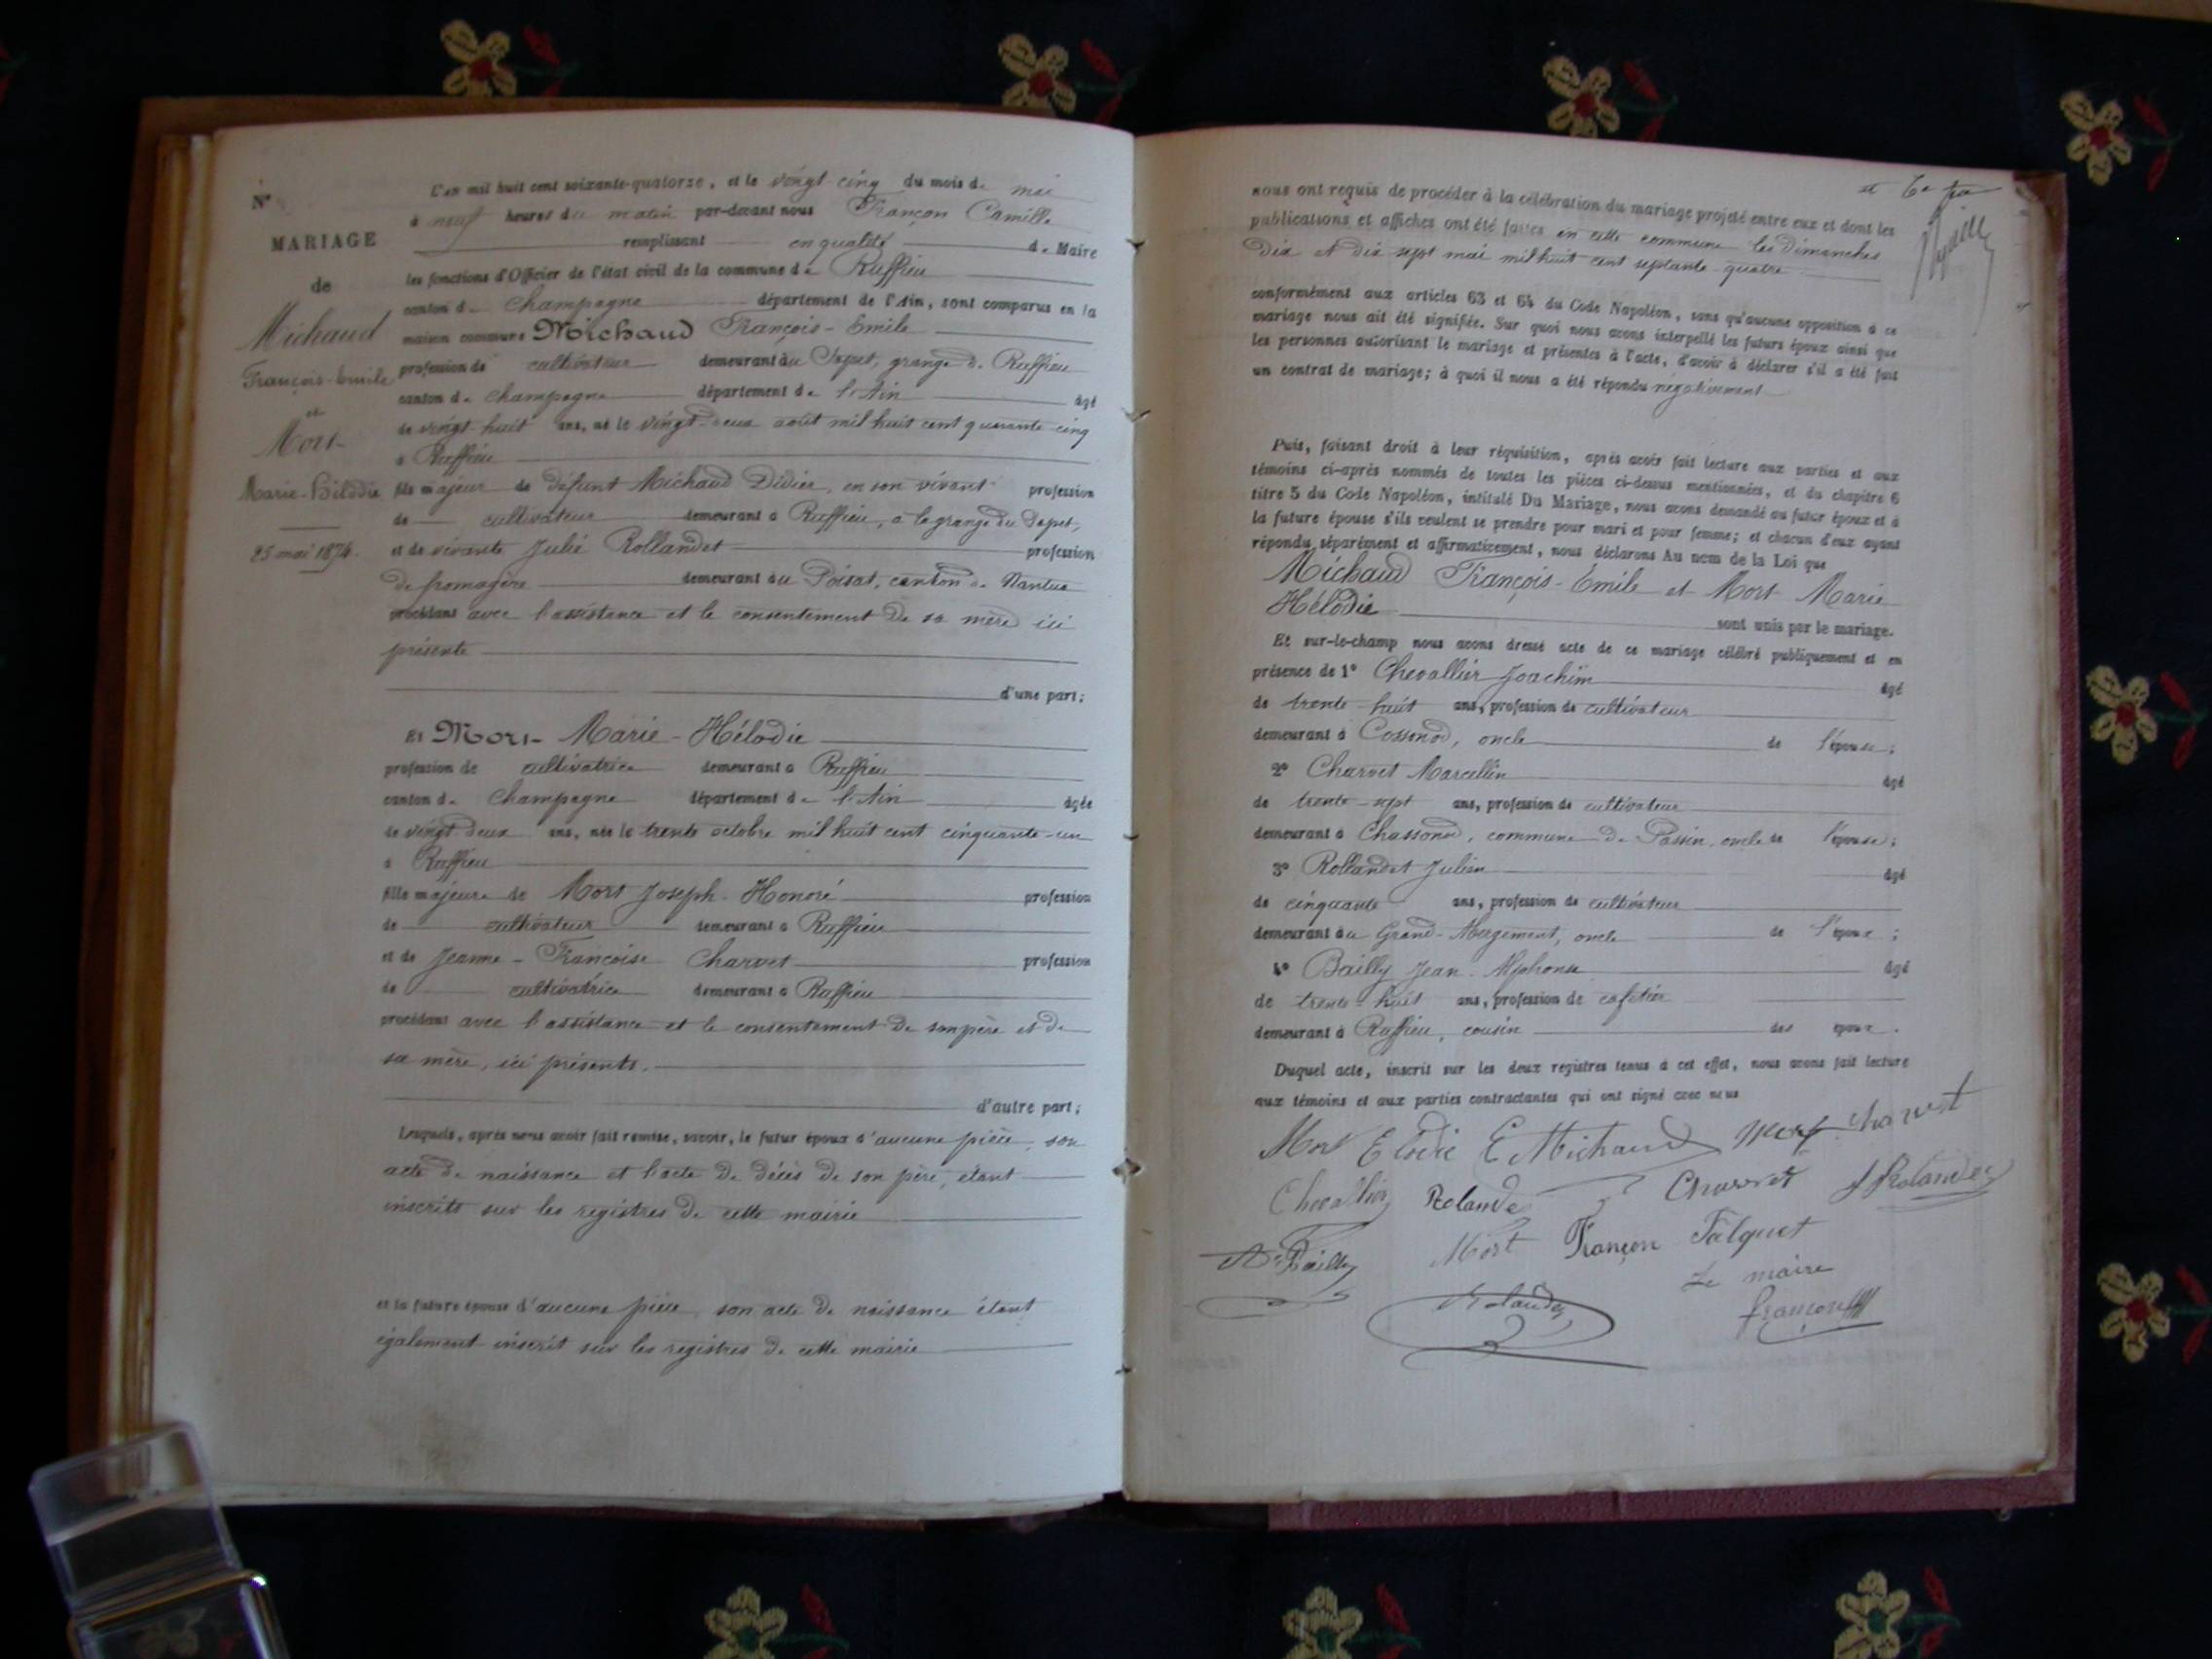 N°
MARIAGE
de
Michaud
François-Emile
et
Mort
Marie-Hélodie
25 mai 1874.
L'an mil huit cent soixante-quatorze, et le vingt cinq du mois de mai
à neuf heures du matin par-devant nous Françon Camille
remplissant en qualité de Maire
les fonctions d'Officier de l'état civil de la commune de Ruffieu
canton de Champagne département de l'Ain, sont comparus en la
maison commune Michaud François-Emile
profession de cultivateur demeurant au Sapet, grange de Ruffieu
canton de Champagne département de l'Ain âgé
de vingt huit ans, né le vingt-deux août mil huit cent quarante-cinq
à Ruffieu
fils majeur de défunt Michaud Didier, en son vivant profession
de cultivateur demeurant à Ruffieu, à la grange du Sapet,
et de vivante Julie Rollandet profession
de fromagère demeurant au Poizat, canton de Nantua
procédant avec l'assistance et le consentement de sa mère ici
présente
d'une part;
Et Mort Marie-Hélodie
profession de cultivatrice demeurant à Ruffieu
canton de Champagne département de l'Ain âgée
de vingt deux ans, née le trente octobre mil huit cent cinquante-un
à Ruffieu
fille majeure de Mort Joseph-Honoré profession
de cultivateur demeurant à Ruffieu
et de Jeanne-Françoise Charvet profession
de cultivatrice demeurant à Ruffieu
procédant avec l'assistance et le consentement de son père et de
sa mère, ici présents.
d'autre part;
Lesquels, après nous avoir fait remise, savoir, le futur époux d'aucune pièce, son
acte de naissance et l'acte de décès de son père, étant
inscrits sur les registres de cette mairie
et la future épouse d'aucune pièce, son acte de naissance étant
également inscrit sur les registres de cette mairie
nous ont requis de procéder à la célébration du mariage projeté entre eux et dont les
publications et affiches ont été faites en cette commune les dimanches
dix et dix sept mai mil huit cent septante-quatre
conformément aux articles 63 et 64 du Code Napoléon, sans qu'aucune opposition à ce
mariage nous ait été signifiée. Sur quoi nous avons interpellé les futurs époux ainsi que
les personnes autorisant le mariage et présentes à l'acte, d'avoir à déclarer s'il a été fait
un contrat de mariage; à quoi il nous a été répondu négativement
Puis, faisant droit à leur réquisition, après avoir fait lecture aux parties et aux
témoins ci-après nommés de toutes les pièces ci-dessus mentionnées, et du chapitre 6
titre 5 du Code Napoléon, intitulé Du Mariage, nous avons demandé au futur époux et à
la future épouse s'ils veulent se prendre pour mari et pour femme; et chacun d'eux ayant
répondu séparément et affirmativement, nous déclarons Au nom de la Loi que
Michaud François-Emile et Mort Marie
Hélodie
sont unis par le mariage.
Et sur-le-champ nous avons dressé acte de ce mariage célébré publiquement et en
présence de 1° Chevallier Joachim âgé
de trente-huit ans, profession de cultivateur
demeurant à Cossonod, oncle de l'épouse;
2° Charvet Marcellin âgé
de trente-sept ans, profession de cultivateur
demeurant à Chassonod, commune de Passin, oncle de l'épouse;
3° Rollandet Julien âgé
de cinquante ans, profession de cultivateur
demeurant au Grand-Abergement, oncle de l'époux;
4° Bailly Jean-Alphonse âgé
de trente-huit ans, profession de cafetier
demeurant à Ruffieu, cousin des époux.
Duquel acte, inscrit sur les deux registres tenus à cet effet, nous avons fait lecture
aux témoins et aux parties contractantes qui ont signé avec nous
Mort Elodie E Michaud Mort Charvet
Chevallier Rolande Charvet J Rolandez
A Bailly Mort Françon Falquet
Rolandez Le maire
françon